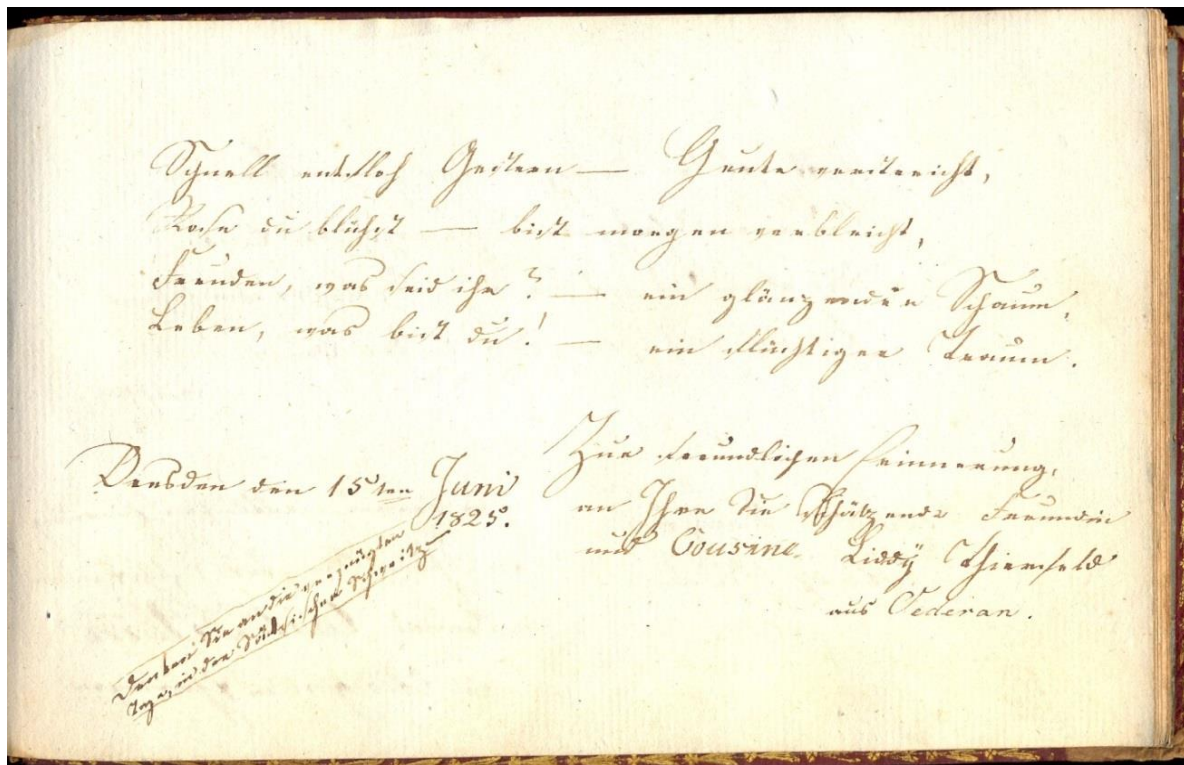 Schnell entfloh Gestern — Heute verstreicht,
Rose du blühst — bist morgen verbleicht,
Freuden, was seid ihr? — ein glänzender Schaum,
Leben, was bist du! — ein flüchtiger Traum.
Dresden den 15ten Juni
1825.
Zur freundlichen Erinnerung,
an Ihre Sie schätzende Freundin
und Cousine Liddÿ Thierfeld
aus Oederan.
Denken Sie an die vergnügten
Tage, in der Sächsischen Schweitz